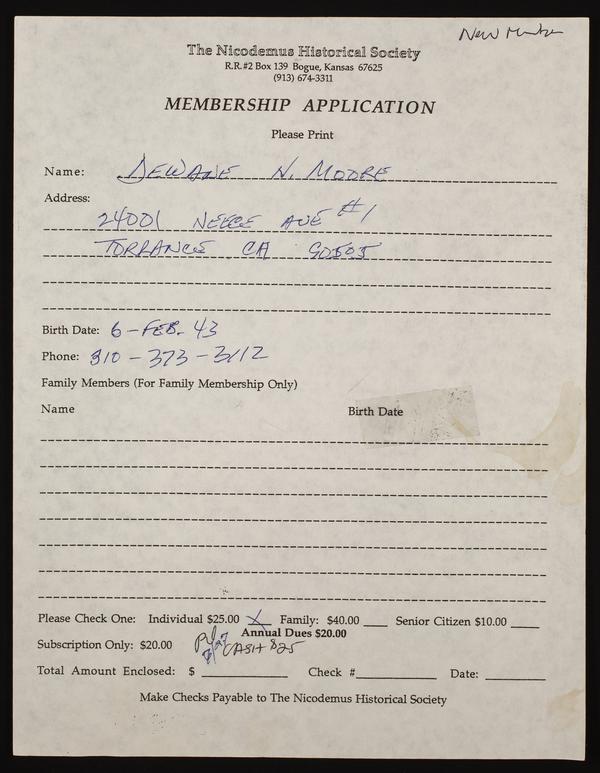 New Member
The Nicodemus Historical Society
R.R.#2 Box 139 Bogue, Kansas 67625
(913) 674-3311
MEMBERSHIP APPLICATION
Please Print
Name: DEWANE N. MOORE
Address:
24001 NEECE AVE #1
TORRANCE CA 90505
Birth Date: 6-FEB. 43
Phone: 310-373-3112
Family Members (For Family Membership Only)
Name Birth Date
Please Check One: Individual $25.00 X Family: $40.00 ___ Senior Citizen $10.00 ___
Annual Dues $20.00
Subscription Only: $20.00 Pd CASH $25
Total Amount Enclosed: $ ___ Check # ___ Date: ___
Make Checks Payable to The Nicodemus Historical Society